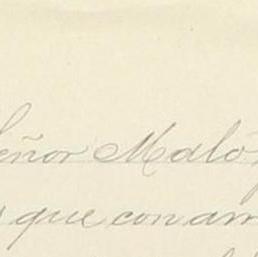 Señor Maló
que con am